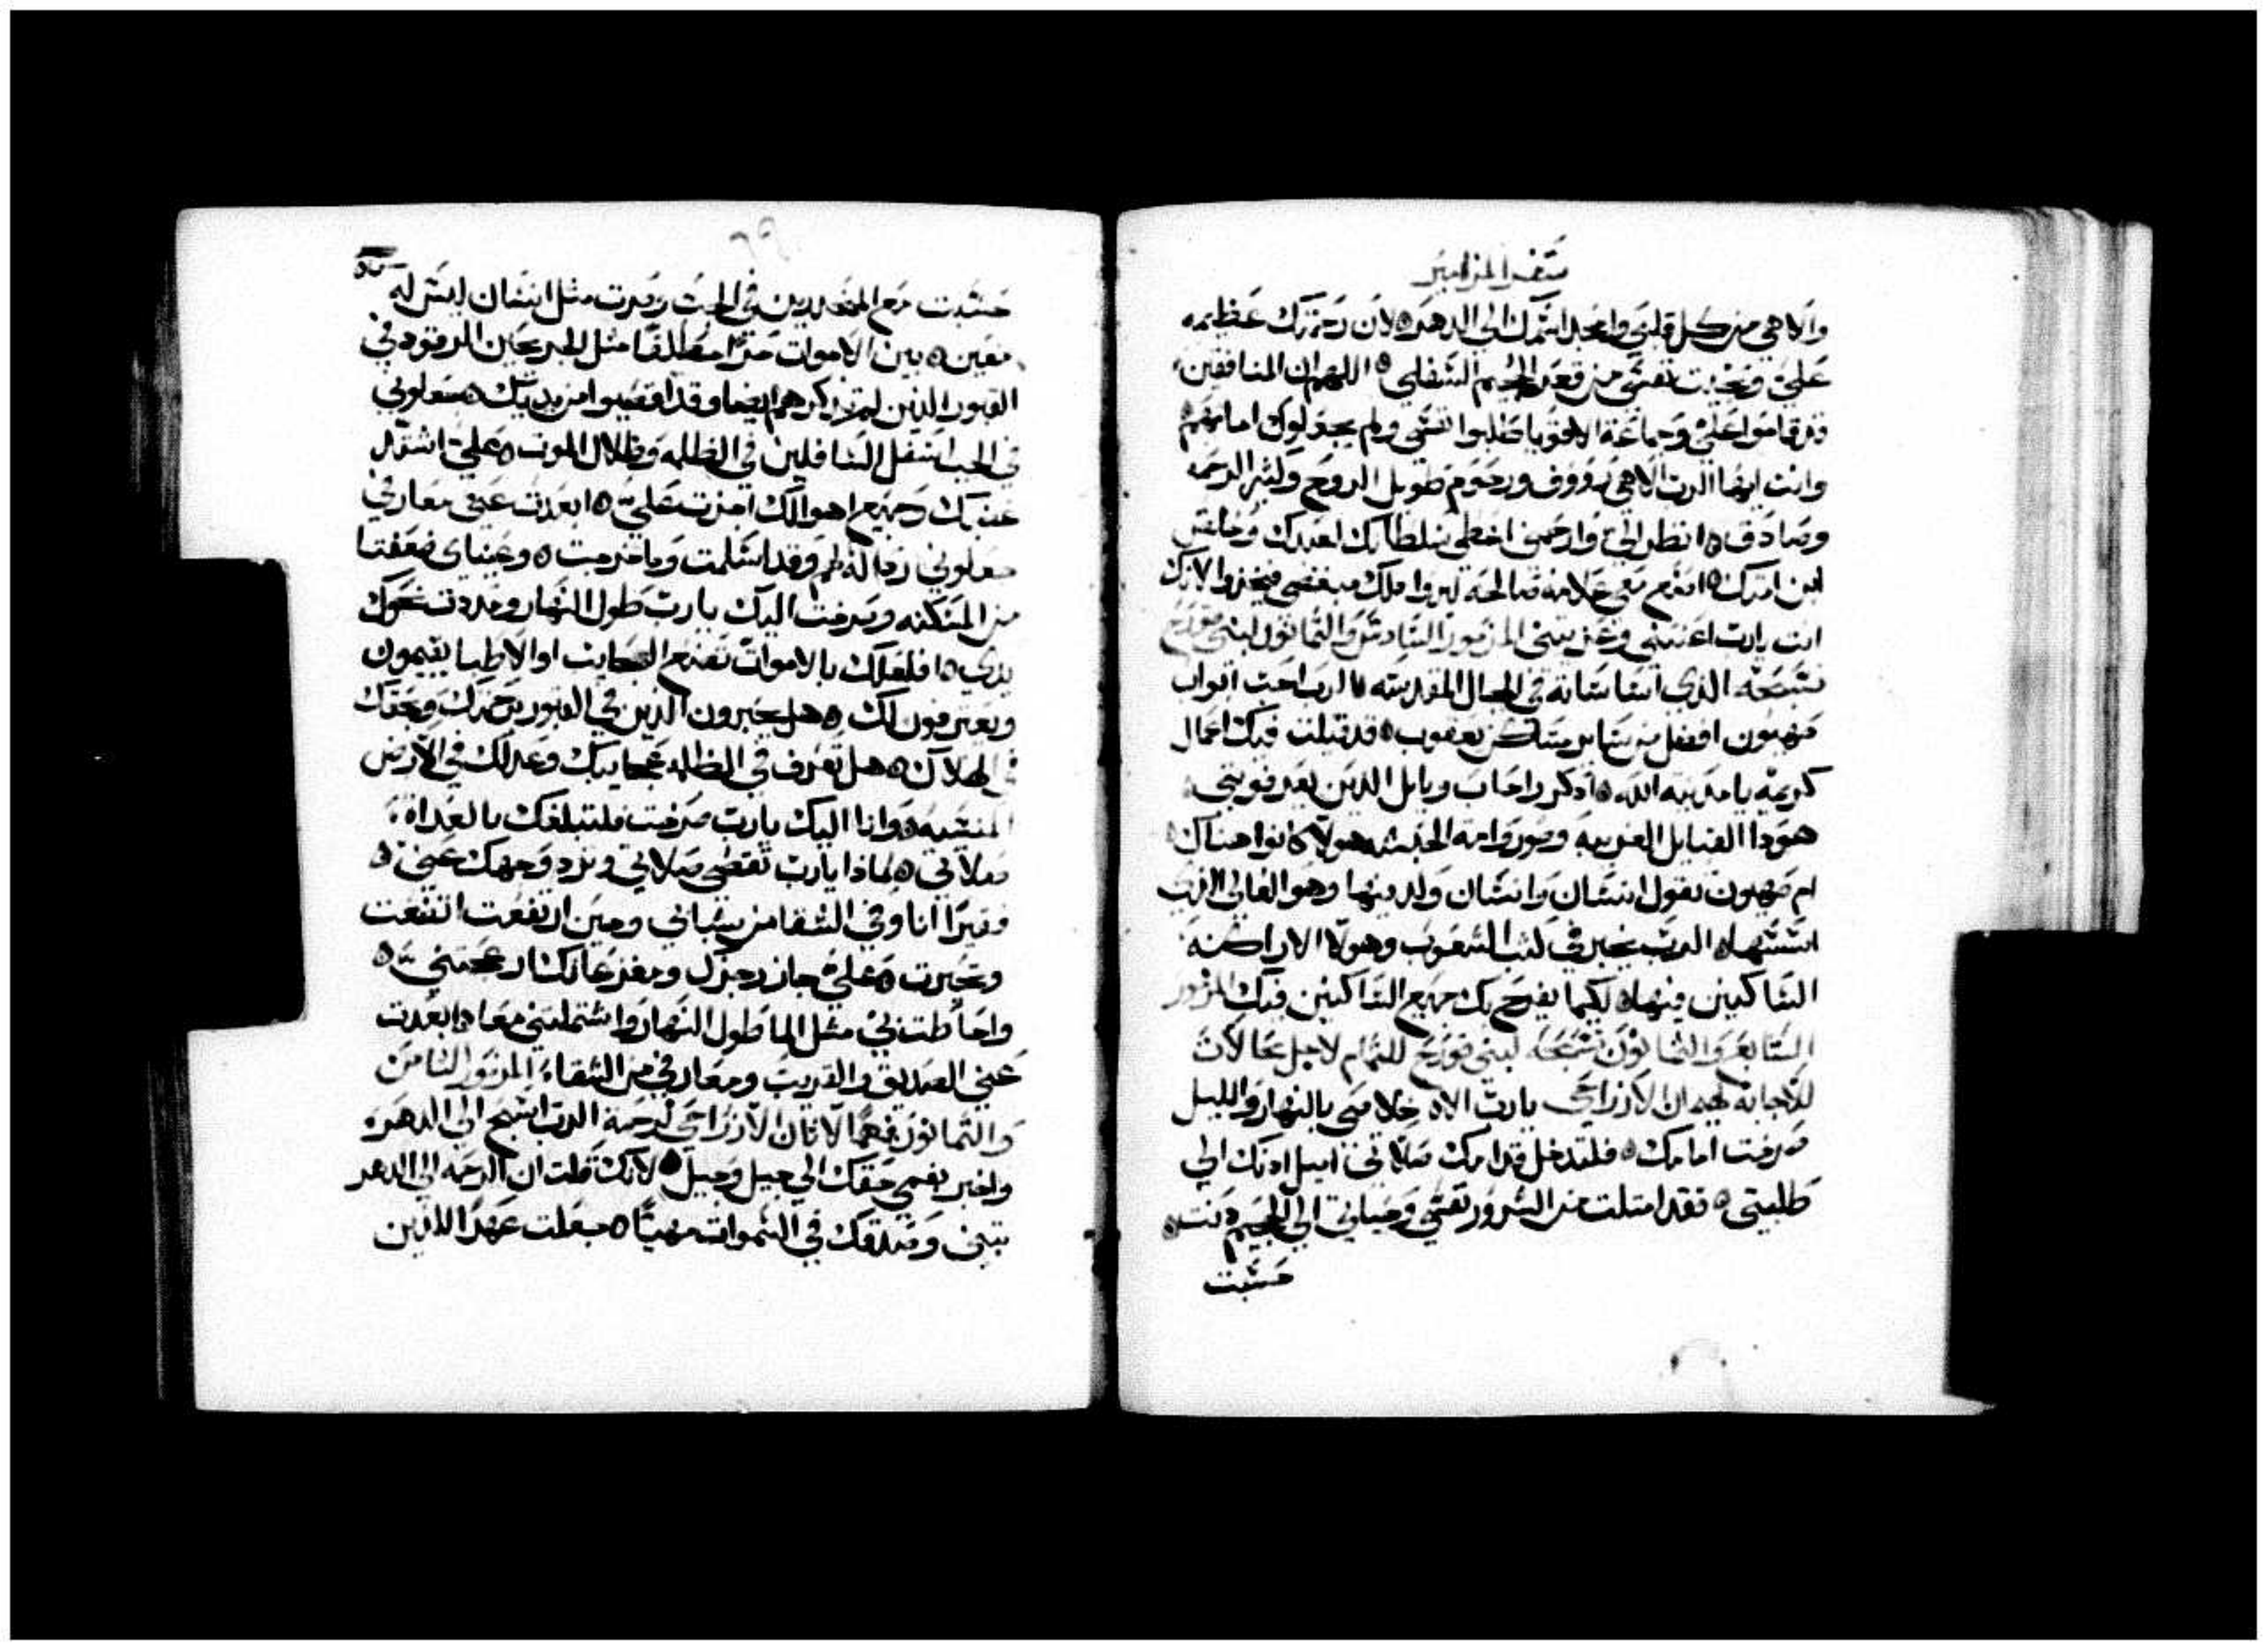 سفر المزامير
والاهي من كل قلبي وامجد اسمك الي الدهر ٥ لان رحمتك عظيمه
علي ونجيت نفسي من قعر الجحيم السفلي ٥ اللهم ان المنافقين
قد قاموا علي وجماعة الاقويا طلبوا نفسي ولم يجعلوك امامهم
وانت ايها الرب الاهي رووف ورحوم طويل الروح وكثير الرحمه
وصادق ٥ انظر الي وارحمني اعطي سلطانك لعبدك وخلص
ابن امتك ٥ اصنع معي علامه صالحه ليروا ذلك مبغضي فيخزوا لانك
انت يارب اعنتني وعزيتني المزمور السادس والثمانون لبني قورح
تسبحه الذي اساساته في الجبال المقدسه ٥ الرب احب ابواب
صهيون افضل من ساير مساكن يعقوب ٥ قد قيلت فيك اعمال
كريمه يا مدينه الله ٥ اذكر راحاب وبابل الذين يعرفونني
هودا القبايل الغريبه وصور وامه الحبشه هولا كانوا هناك
ام صهيون تقول انسان وانسان ولد فيها وهو العالي الذي
اسسها ٥ الرب يخبر في كتب الشعوب وهولا الاراكنه
الساكنين فيها ٥ لكيما يفرح بك جميع الساكنين فيك المزمور
السابع والثمانون تسبحه لبني قورح للتمام لاجل محالات
للاجابه لهمان الازراحي يارب الاه خلاصي بالنهار والليل
صرخت امامك ٥ فلتدخل قدامك صلاتي اميل ادنك الي
طلبتي ٥ فقد امتلت من الشرور نفسي وحياتي الي الجحيم دنت ٥
حسبت
حسبت مع المنحدرين في الجب وصرت مثل انسان ليس له
معين ٥ بين الاموات حرا مطلقا مثل المجرحين الرقود في
القبور الذين لم تذكرهم ايضا وقد اقصيوا من يديك ٥ جعلوني
في الجب اسفل السافلين في الظلمه وظلال الموت ٥ علي اشتد
غضبك وجميع اهوالك اجزت علي ٥ ابعدت عني معارفي
جعلوني رذاله لهم وقد اسلمت وما خرجت ٥ وعيناي ضعفتا
من المسكنه وصرخت اليك يارب طول النهار ومددت نحوك
يدي ٥ افلعلك بالاموات تصنع العجايب او الاطبا يقيمون
ويعترفون لك ٥ هل يخبرون الذين في القبور برحمتك وبحقك
في الهلاك ٥ هل تعرف في الظلمه عجايبك وعدلك في الارض
المنسيه ٥ وانا اليك يارب صرخت فلتبلغك بالغداه
صلاتي ٥ لماذا يارب تقصي صلاتي وترد وجهك عني ٥
فقيرا انا وفي الشقا من شبابي وحين ارتفعت اتضعت
وتحيرت ٥ علي جاز رجزك ومفزعاتك ارعجتني ٥
واحاطت بي مثل الما طول النهار واشتملتني معا ٥ ابعدت
عني الصديق والقريب ومعارفي من الشقاء المزمور الثامن
والثمانون فهما لاتان الازراحي لرحمة الرب اسبح الي الدهر ٥
واخبر بفمي حقك الي جيل وجيل ٥ لانك قلت ان الرحمه الي الدهر
تبني وصدقك في السموات مهيئا ٥ جعلت عهدا للذين